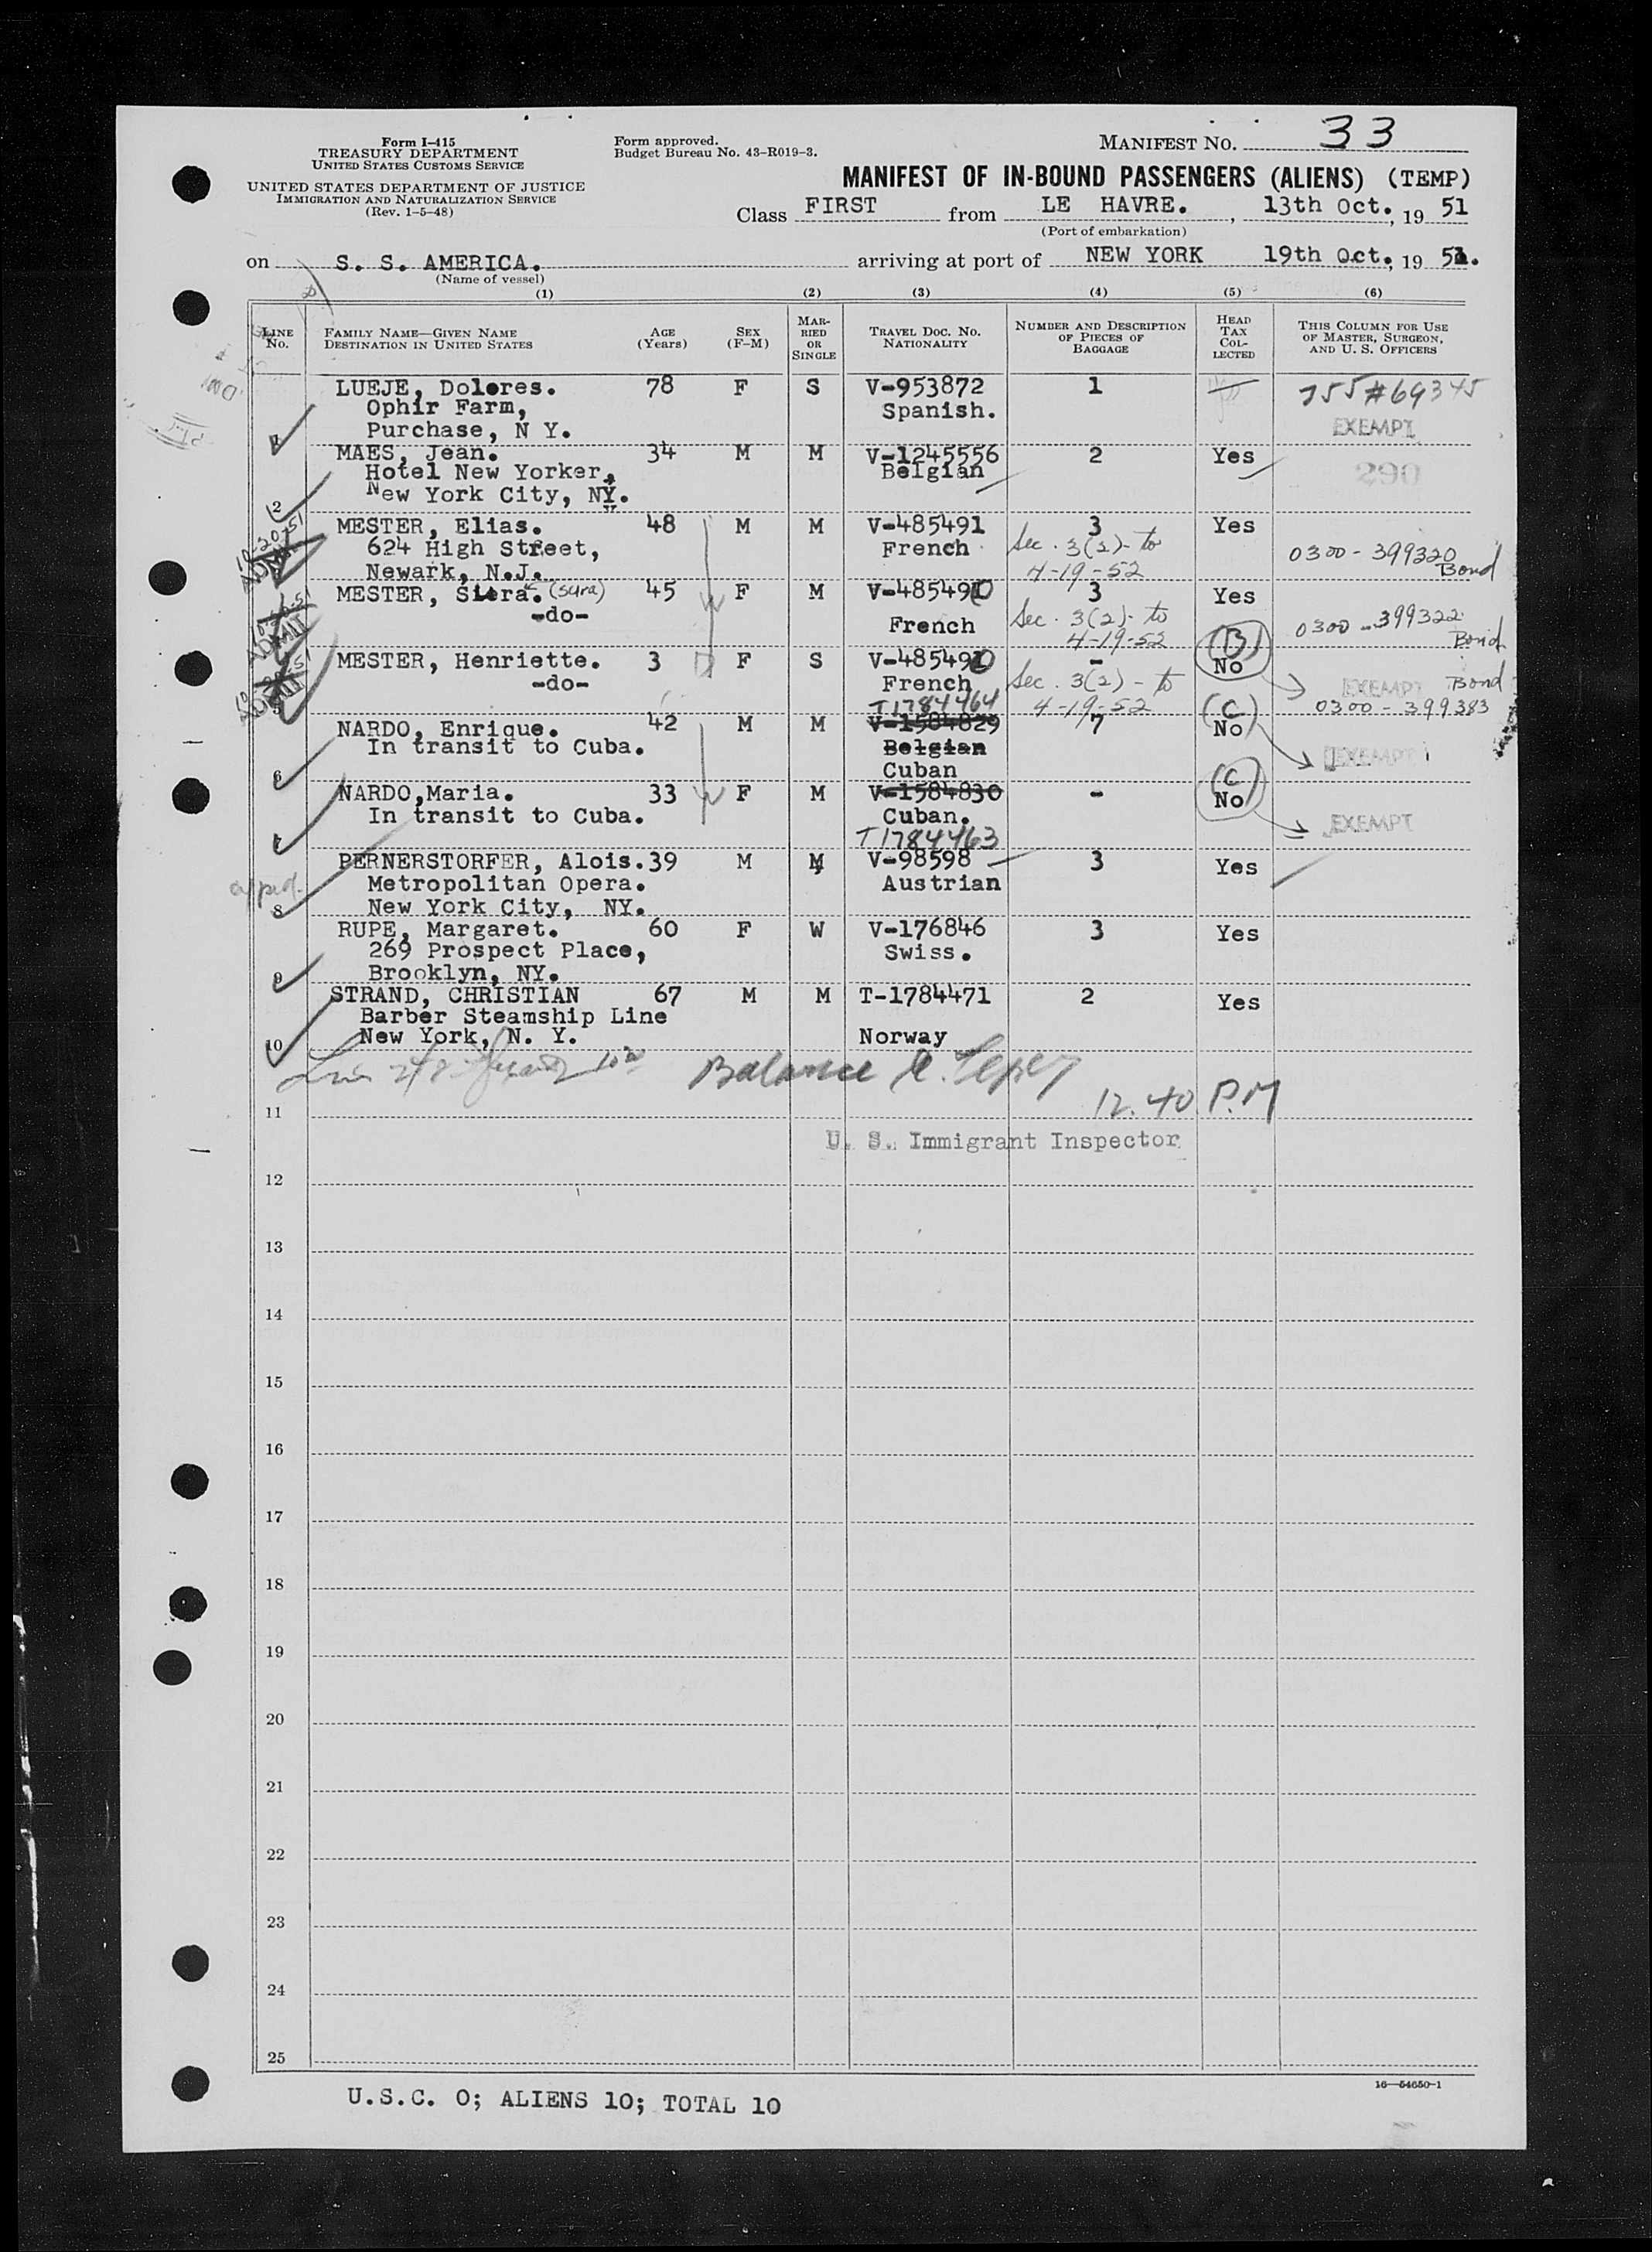 Form I-415
TREASURY DEPARTMENT
UNITED STATES CUSTOMS SERVICE
UNITED STATES DEPARTMENT OF JUSTICE
IMMIGRATION AND NATURALIZATION SERVICE
(Rev. 1-5-48)
Form approved.
Budget Bureau No. 43-R019-3.
MANIFEST NO. 33
MANIFEST OF IN-BOUND PASSENGERS (ALIENS) (TEMP)
Class FIRST from LE HAVRE. , 13th Oct. , 19 51
(Port of embarkation)
on S. S. AMERICA. arriving at port of NEW YORK 19th Oct. , 19 51.
(Name of vessel)
(1) (2) (3) (4) (5) (6)
LINE No. FAMILY NAME—GIVEN NAME DESTINATION IN UNITED STATES AGE (Years) SEX (F-M) MARRIED OR SINGLE TRAVEL DOC. NO. NATIONALITY NUMBER AND DESCRIPTION OF PIECES OF BAGGAGE HEAD TAX COLLECTED THIS COLUMN FOR USE OF MASTER, SURGEON, AND U. S. OFFICERS
LUEJE, Dolores. 78 F S V-953872 1 #69345
Ophir Farm, Spanish.
Purchase, N Y. EXEMPT
MAES, Jean. 34 M M V-1245556 2 Yes
Hotel New Yorker, Belgian 290
2 New York City, NY.
MESTER, Elias. 48 M M V-485491 3 Yes
624 High Street, French Sec. 3(2)- to 0300-399320
Newark, N.J. 4-19-52 Bond
MESTER, Siera. (Sura) 45 F M V-485490 3 Yes
-do- French Sec. 3(2)- to 0300-399322
4-19-52 Bond
MESTER, Henriette. 3 F S V-485490 - (B) No
-do- French Sec. 3(2) - to EXEMPT Bond
5 T1784464 4-19-52 0300-399383
NARDO, Enrique. 42 M M V-1584829 7 (C) No
In transit to Cuba. Belgian EXEMPT
6 Cuban
NARDO,Maria. 33 F M V-1584830 - (C) No
In transit to Cuba. Cuban. EXEMPT
T1784463
PERNERSTORFER, Alois. 39 M M V-98598 3 Yes
Metropolitan Opera. Austrian
8 New York City, NY.
RUPE, Margaret. 60 F W V-176846 3 Yes
269 Prospect Place, Swiss.
9 Brooklyn, NY.
STRAND, CHRISTIAN 67 M M T-1784471 2 Yes
Barber Steamship Line
10 New York, N. Y. Norway
Balance
12.40 P.M
11
U. S. Immigrant Inspector
12
13
14
15
16
17
18
19
20
21
22
23
24
25
16—54650-1
U.S.C. 0; ALIENS 10; TOTAL 10